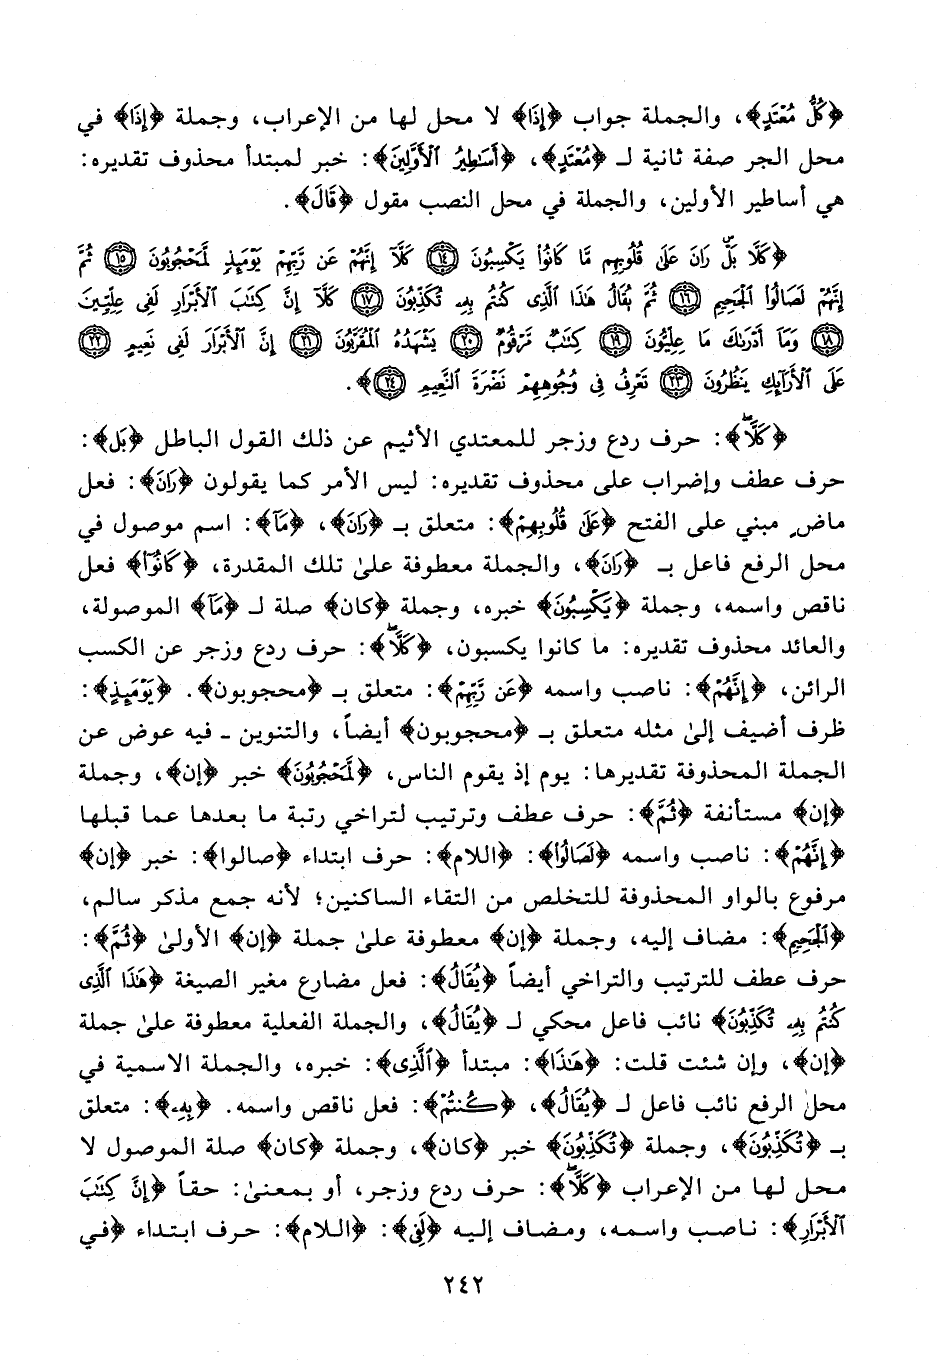 ﴿كُلُّ مُعْتَدٍ﴾، والجملة جواب ﴿إِذَا﴾ لا محل لها من الإعراب، وجملة ﴿إِذَا﴾ في
محل الجر صفة ثانية لـ ﴿مُعْتَدٍ﴾، ﴿أَسَٰطِيرُ ٱلْأَوَّلِينَ﴾: خبر لمبتدأ محذوف تقديره:
هي أساطير الأولين، والجملة في محل النصب مقول ﴿قَالَ﴾.
﴿كَلَّا بَلْ رَانَ عَلَىٰ قُلُوبِهِم مَّا كَانُوا۟ يَكْسِبُونَ ١٤ كَلَّآ إِنَّهُمْ عَن رَّبِّهِمْ يَوْمَئِذٍ لَّمَحْجُوبُونَ ١٥ ثُمَّ
إِنَّهُمْ لَصَالُوا۟ ٱلْجَحِيمِ ١٦ ثُمَّ يُقَالُ هَٰذَا ٱلَّذِى كُنتُم بِهِۦ تُكَذِّبُونَ ١٧ كَلَّآ إِنَّ كِتَٰبَ ٱلْأَبْرَارِ لَفِى عِلِّيِّينَ
١٨ وَمَآ أَدْرَىٰكَ مَا عِلِّيُّونَ ١٩ كِتَٰبٌ مَّرْقُومٌ ٢٠ يَشْهَدُهُ ٱلْمُقَرَّبُونَ ٢١ إِنَّ ٱلْأَبْرَارَ لَفِى نَعِيمٍ ٢٢
عَلَى ٱلْأَرَآئِكِ يَنظُرُونَ ٢٣ تَعْرِفُ فِى وُجُوهِهِمْ نَضْرَةَ ٱلنَّعِيمِ ٢٤﴾.
﴿كَلَّا﴾: حرف ردع وزجر للمعتدي الأثيم عن ذلك القول الباطل ﴿بَل﴾:
حرف عطف وإضراب على محذوف تقديره: ليس الأمر كما يقولون ﴿رَانَ﴾: فعل
ماض مبني على الفتح ﴿عَلَىٰ قُلُوبِهِمْ﴾: متعلق بـ ﴿رَانَ﴾، ﴿مَّا﴾: اسم موصول في
محل الرفع فاعل بـ ﴿رَانَ﴾، والجملة معطوفة على تلك المقدرة، ﴿كَانُوٓا۟﴾ فعل
ناقص واسمه، وجملة ﴿يَكْسِبُونَ﴾ خبره، وجملة ﴿كان﴾ صلة لـ ﴿مَا﴾ الموصولة،
والعائد محذوف تقديره: ما كانوا يكسبون، ﴿كَلَّا﴾: حرف ردع وزجر عن الكسب
الرائن، ﴿إِنَّهُمْ﴾: ناصب واسمه ﴿عَن رَّبِّهِمْ﴾: متعلق بـ ﴿محجوبون﴾. ﴿يَوْمَئِذٍ﴾:
ظرف أضيف إلى مثله متعلق بـ ﴿محجوبون﴾ أيضاً، والتنوين - فيه عوض عن
الجملة المحذوفة تقديرها: يوم إذ يقوم الناس، ﴿لَّمَحْجُوبُونَ﴾ خبر ﴿إن﴾، وجملة
﴿إن﴾ مستأنفة ﴿ثُمَّ﴾: حرف عطف وترتيب لتراخي رتبة ما بعدها عما قبلها
﴿إِنَّهُمْ﴾: ناصب واسمه ﴿لَصَالُوا۟﴾: ﴿اللام﴾: حرف ابتداء ﴿صالوا﴾: خبر ﴿إن﴾
مرفوع بالواو المحذوفة للتخلص من التقاء الساكنين؛ لأنه جمع مذكر سالم،
﴿ٱلْجَحِيمِ﴾: مضاف إليه، وجملة ﴿إن﴾ معطوفة على جملة ﴿إن﴾ الأولى ﴿ثُمَّ﴾:
حرف عطف للترتيب والتراخي أيضاً ﴿يُقَالُ﴾: فعل مضارع مغير الصيغة ﴿هَٰذَا ٱلَّذِى
كُنتُم بِهِۦ تُكَذِّبُونَ﴾ نائب فاعل محكي لـ ﴿يُقَالُ﴾، والجملة الفعلية معطوفة على جملة
﴿إن﴾، وإن شئت قلت: ﴿هَٰذَا﴾: مبتدأ ﴿ٱلَّذِى﴾: خبره، والجملة الاسمية في
محل الرفع نائب فاعل لـ ﴿يُقَالُ﴾، ﴿كُنتُمْ﴾: فعل ناقص واسمه. ﴿بِهِۦ﴾: متعلق
بـ ﴿تُكَذِّبُونَ﴾، وجملة ﴿تُكَذِّبُونَ﴾ خبر ﴿كان﴾، وجملة ﴿كان﴾ صلة الموصول لا
محل لها من الإعراب ﴿كَلَّا﴾: حرف ردع وزجر، أو بمعنى: حقاً ﴿إِنَّ كِتَٰبَ
ٱلْأَبْرَارِ﴾: ناصب واسمه، ومضاف إليه ﴿لَفِى﴾: ﴿اللام﴾: حرف ابتداء ﴿في
٢٤٢